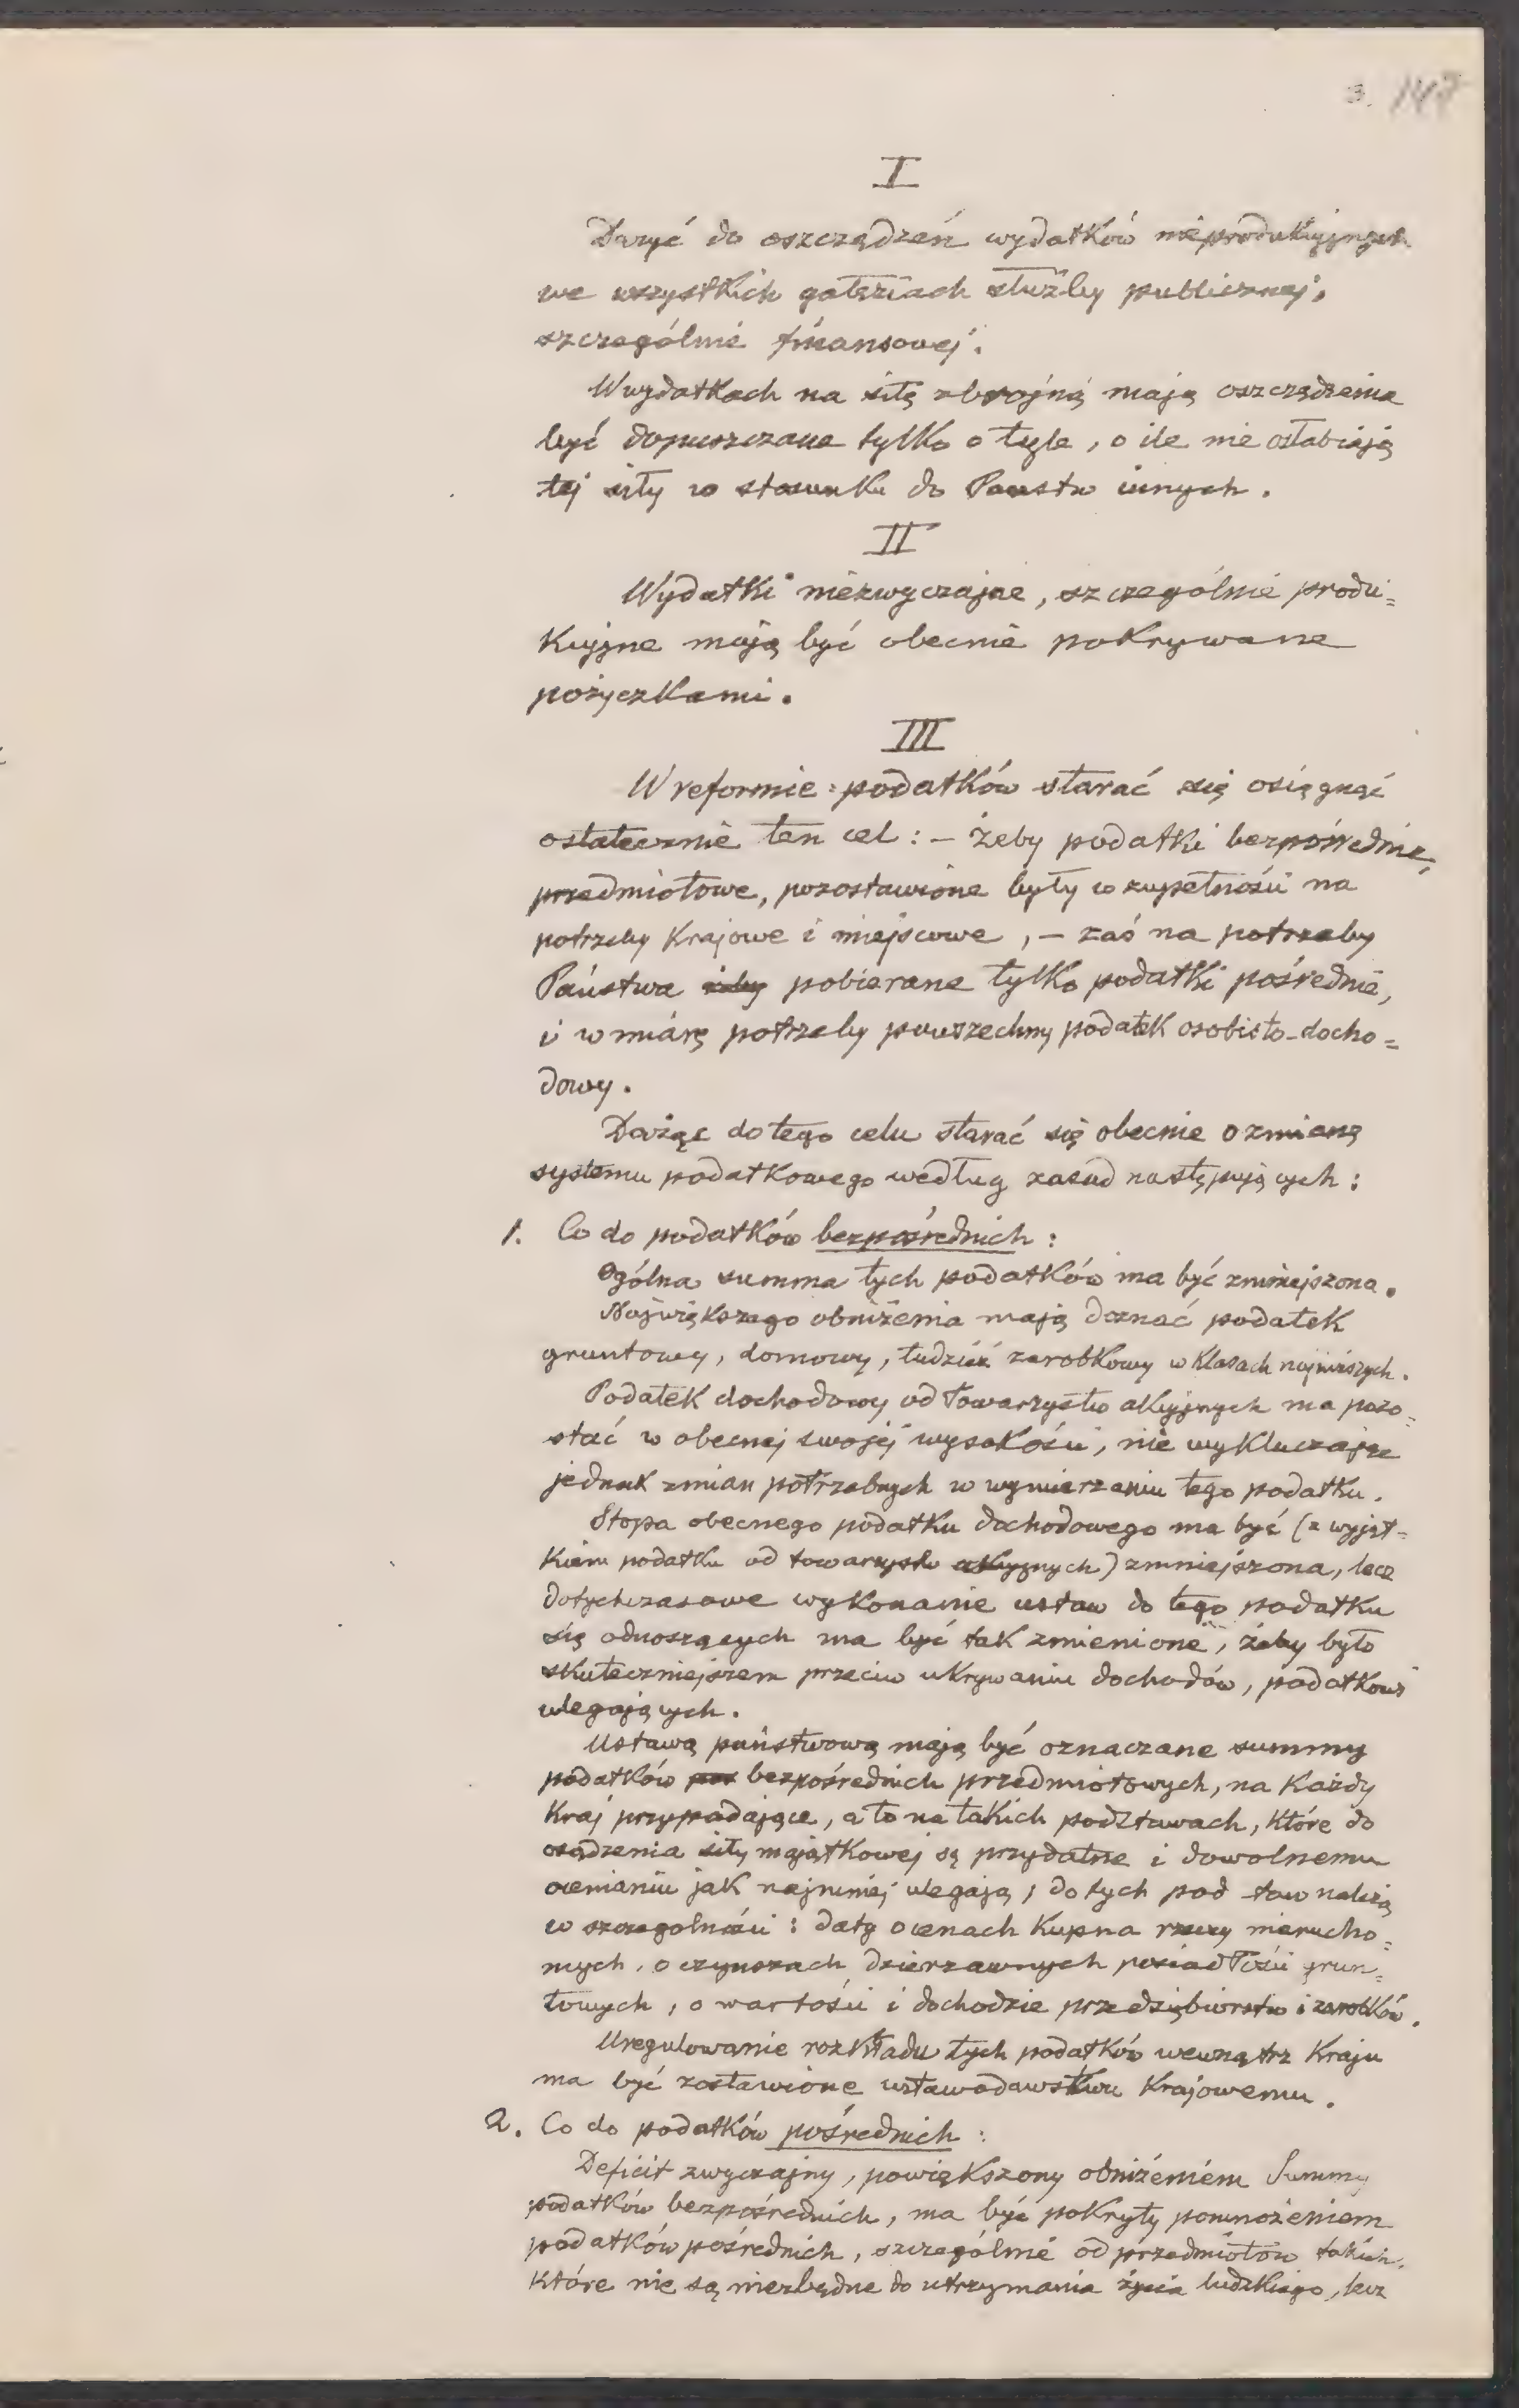 3. 147
I
Dążyć do oszczędzeń wydatków nieprodukcyjnych
we wszystkich gałęziach służby publicznej,
szczególnie finansowej.
W wydatkach na siłę zbrojną mają oszczędzenia
być dopuszczane tylko o tyle, o ile nie osłabiają
tej siły w stosunku do Państw innych.
II
Wydatki niezwyczajne, szczególnie produ=
kcyjne mają być obecnie pokrywane
pożyczkami.
III
W reformie podatków starać się osiągnąć
ostatecznie ten cel: – żeby podatki bezpośrednie,
przedmiotowe, pozostawione były w zupełności na
potrzeby Krajowe i miejscowe, – zaś na potrzeby
Państwa pobierane tylko podatki pośrednie,
i w miarę potrzeby powszechny podatek osobisto-docho=
dowy.
Dążąc do tego celu starać się obecnie o zmianę
systemu podatkowego według zasad następujących:
1. Co do podatków bezpośrednich:
Ogólna summa tych podatków ma być zmniejszona.
Największego obniżenia mają doznać podatek
gruntowy, domowy, tudzież zarobkowy w klasach najniższych.
Podatek dochodowy od Towarzystw akcyjnych ma pozo=
stać w obecnej swojej wysokości, nie wykluczając
jednak zmian potrzebnych w wymierzaniu tego podatku.
Stopa obecnego podatku dochodowego ma być (z wyjąt=
kiem podatku od towarzystw akcyjnych) zmniejszona, lecz
dotychczasowe wykonanie ustaw do tego podatku
się odnoszących ma być tak zmienione, żeby było
skuteczniejszem przeciw ukrywaniu dochodów, podatkowi
ulegających.
Ustawą państwową mają być oznaczane summy
podatków bezpośrednich przedmiotowych, na każdy
Kraj przypadające, a to na takich podstawach, które do
osądzenia siły majątkowej są przydatne i dowolnemu
ocenianiu jak najmniej ulegają; do tych pod staw należą
w szczególności: daty o cenach kupna rzeczy nierucho=
mych, o czynszach dzierzawnych posiadłości grun=
towych, o wartości i dochodzie przedsiębiorstw i zarobków.
Uregulowanie rozkładu tych podatków wewnątrz Kraju
ma być zostawione ustawodawstwu Krajowemu.
2. Co do podatków pośrednich:
Deficit zwyczajny, powiększony obniżeniem Summy
podatków bezpośrednich, ma być pokryty pomnożeniem
podatków pośrednich, szczególnie od przedmiotów takich,
które nie są niezbędne do utrzymania życia ludzkiego, lecz